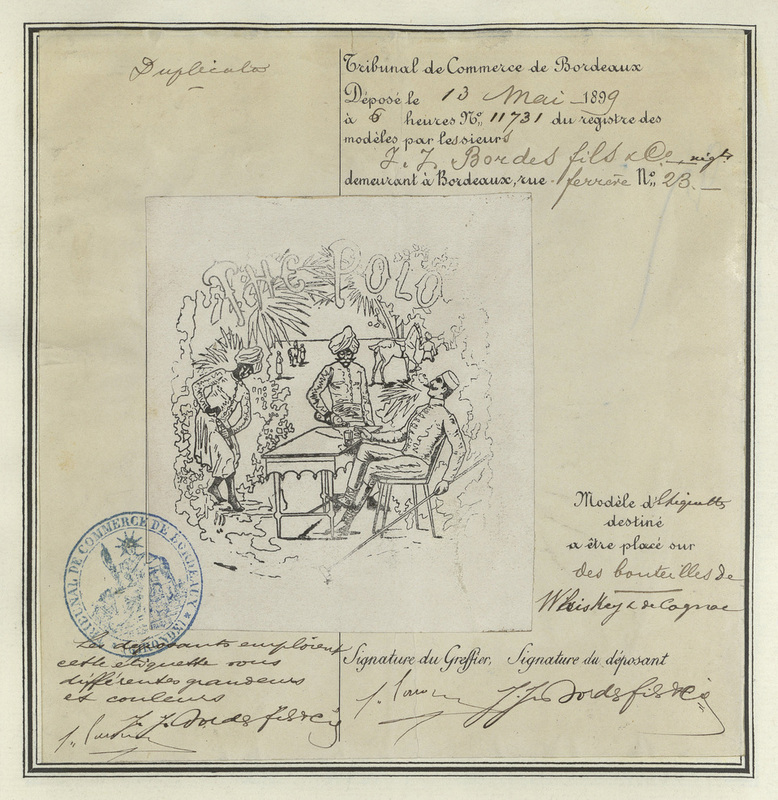 Duplicata
Tribunal de Commerce de Bordeaux
Déposé le 13 Mai 1899
à 5 heures No. 11731 du registre des
modèles par les sieurs
J. J. Bordes fils & Co. négts
demeurant à Bordeaux, rue ferrère No. 23.
THE POLO
Modèle d'étiquette
destiné
a être placé sur
des bouteilles de
Whiskey & de Cognac
TRIBUNAL DE COMMERCE DE BORDEAUX
(GIRONDE)
Les déposants emploient
cette etiquette sous
différentes grandeurs
et couleurs
J. J. Bordes fils & Cie
Signature du Greffier, Signature du déposant
J. J. Bordes fils & Cie